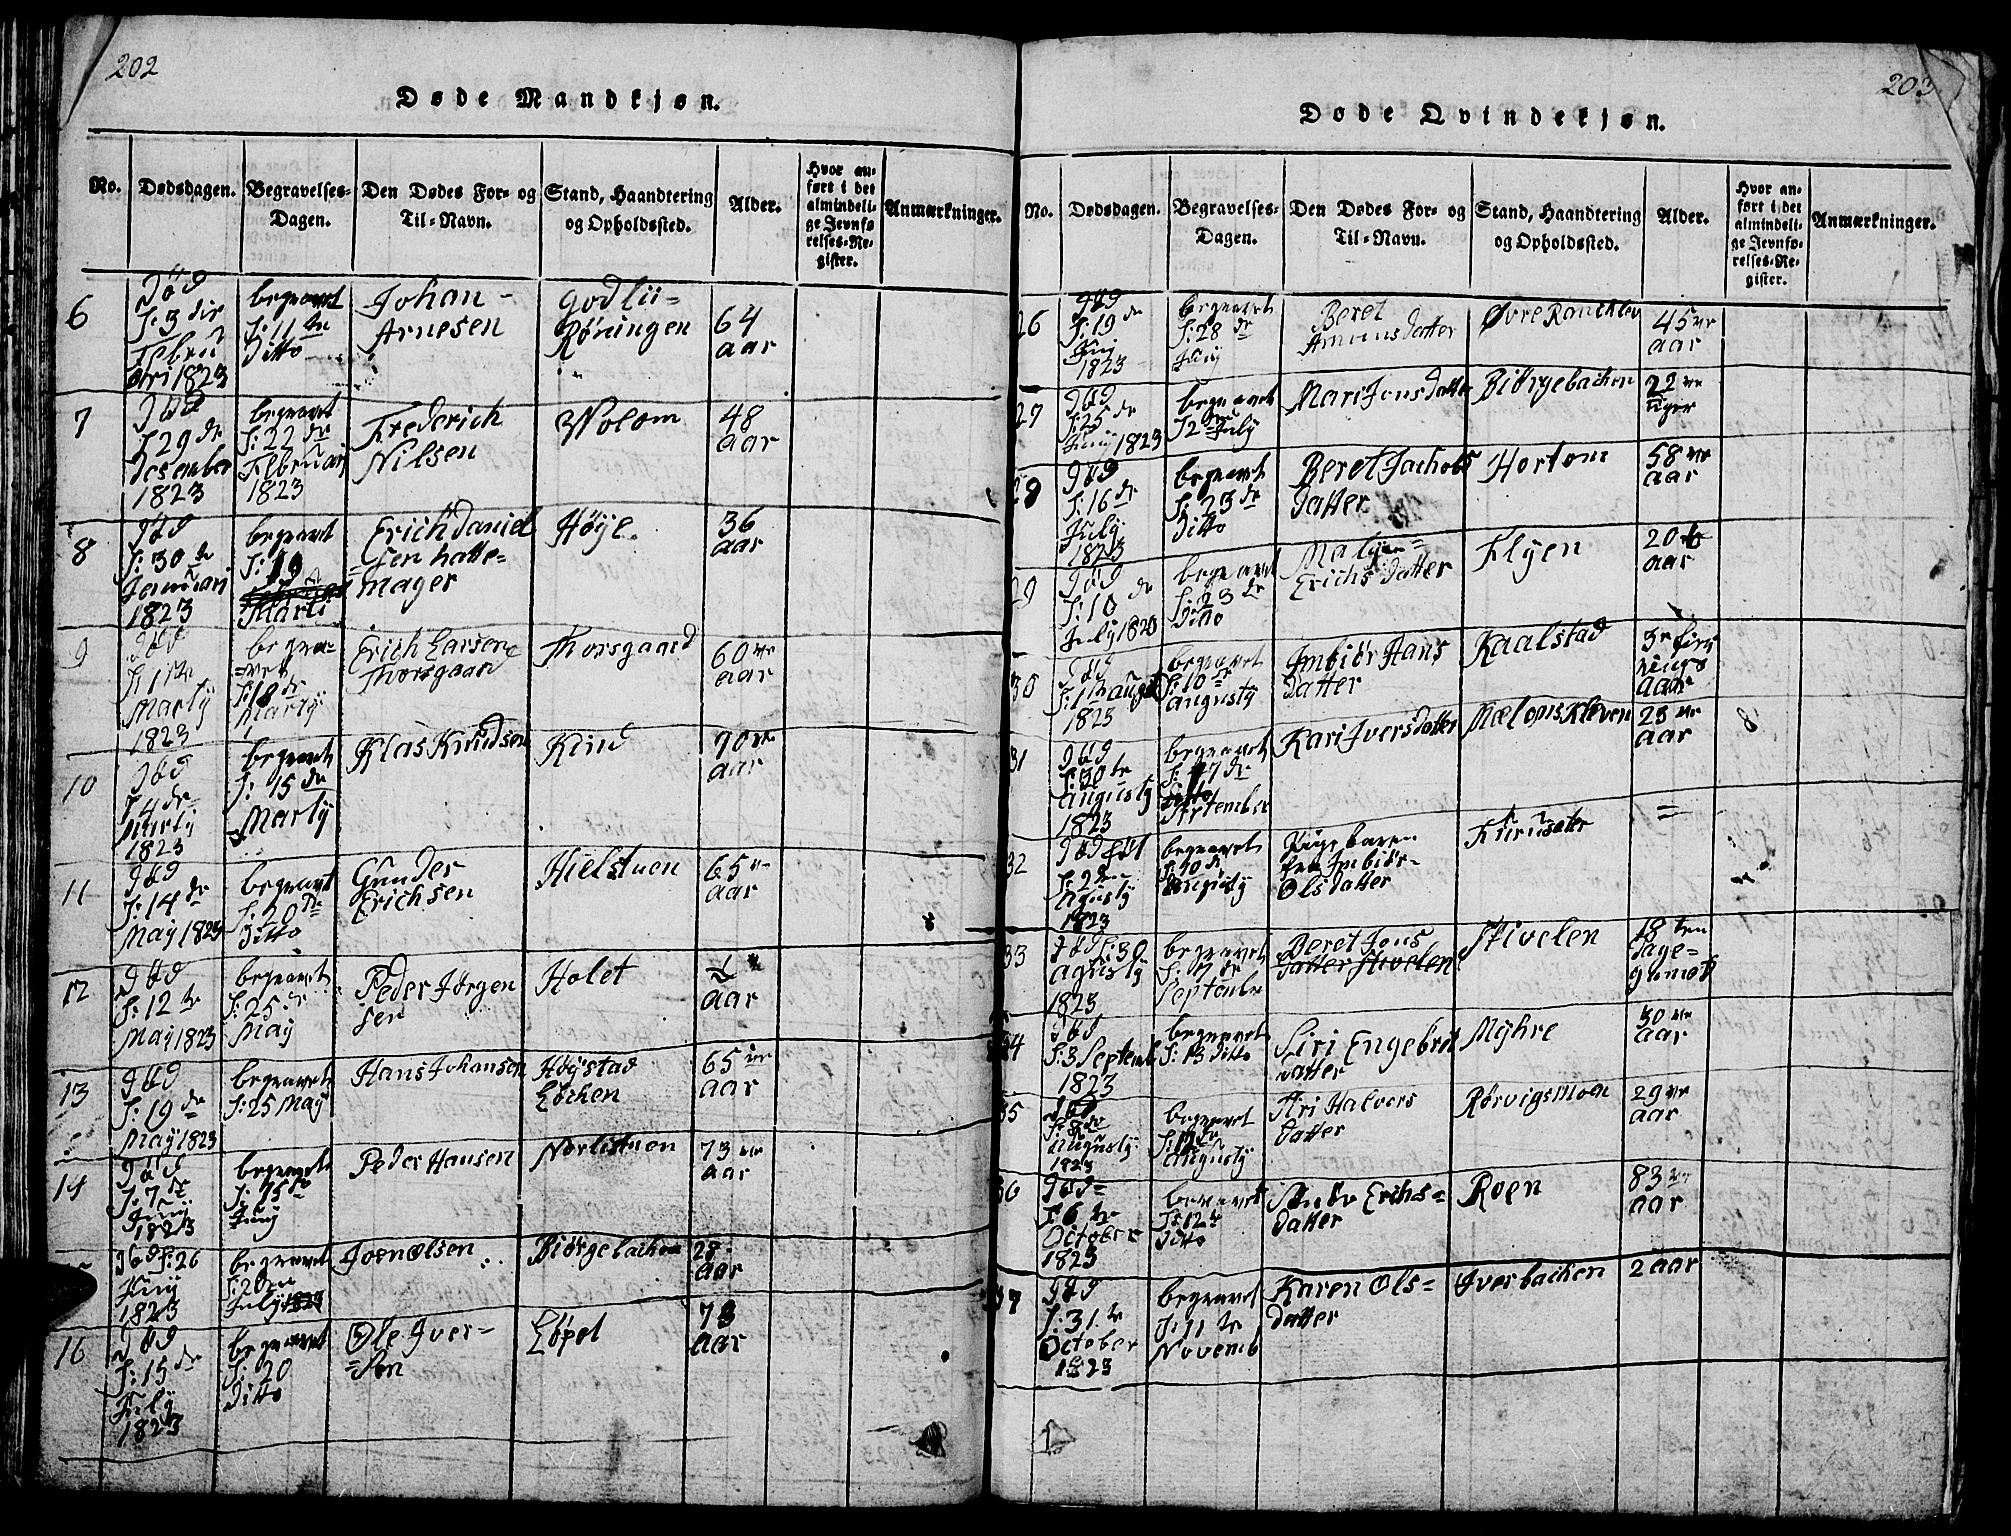 202
Døde Mandkjøn.
No. Dødsdagen. Begravelses-Dagen. Den Dødes For- og Til-Navn. Stand, Haandtering og Opholdssted. Alder. Hvor anført i det almindelige Jevnførelses-Register. Anmærkninger.
6
død
d: 3 die
Febru
ari 1823
begravet
d: 11 te
Ditto
Johan -
Arnesen
godlii=
Røningen
64
aar
7
død
d 29 de
desember
1823
begravet
d: 22 de
Februari
1823
Frederich
Nilsen
Wolom
48
aar
8
død
d: 30 te
Januari
1823
begravet
d: 19
Marti
Erich Daniel
=sen hatte=
mager
Høye.
36
aar
9
død
Marty
1823
begra=
=vet
d: 18 de
Marty
Erich Larsen
Thorsgaard
Thorsgaard
60 ve
aar
10
død
d 4 de
Marty
1823
begravet
d: 15 de
Marty
Klas Knudsen
Kind
70 ve
aar
11
død
d: 14 de
May 1823
begravet
d: 20 de
Ditto
Gunder
Erichsen
Hielstuen
65
aar
12
død
d: 12 te
May 1823
begravet
d: 25 de
May
Peder Jørgen
sen
Holet
aar
13
død
d: 19 de
May 1823
begravet
d: 25 May
Hans Johansen
Høystad
Løcken
65
aar
14
død
d: 7 de
Juny
1823
begravet
d: 15 de
Juny
Peder Hansen
Norlistuen
73 ve
aar
død d: 26
Juny
1823
begravet
July 1823
Joen Olsen
Biørgebachen
28
aar
16
død
d: 15 de
July
1823
begravet
d: 20
Ditto
Ole Iver=
=sen
Løpet
aar
203
Døde Qvindekjøn.
No. Dødsdagen. Begravelses-Dagen. Den Dødes For- og Til-Navn. Stand, Haandtering og Opholdssted. Alder. Hvor anført i det almindelige Jevnførelses-Register. Anmærkninger.
26
død
d: 19 de
Juny
1823
begravet
d: 28 de
Juny
Beret
datter
Øvre
45 ve
aar
27
død
d: 25 de
Juny 1823
begravet
July
Mari Jons datter
Biørgebachen
22 ve
uger
28
død
d: 16 de
July
1823
begravet
d: 23 de
Ditto
Beret Jachobs
datter
Hortom
58 ve
aar
29
død
d: 10 de
July 1823
begravet
d: 23 de
Ditto
Erichs datter
Flyen
20
aar
30
død
1823
begravet
d: 10 de
Augusty
Imbiør Hans
datter
Kaalstad
aar
31
død
d: 30 te
Augusty
1823
begravet
d: 17 de
September
Kari Ivers datter
Mælomskleven
23 ve
aar
8
32
død født
Agusty
1823
begravet
d: 10 de
Augusty
Pigebaren
fra Imbiør
Olsdatter
=
33
død d: 30
Agusty
1823
begravet
Septembr
Beret Jons
datter Stivelen
Stivelen
18 ten
dage=
gamel
34
død
d: 3 Septemb
1823
begravet
d: 13 Ditto
Siri Engebret
datter
Myhre
30 ve
aar
35
død
Augusty
1823
begravet
Augusty
Halvers
datter
Rørvigsmoen
29 ve
aar
36
død
d 6 te
October
1823
begravet
d: 12 te
Ditto
Erichs=
datter
Roen
83 ve
aar
37
død
d: 31 te
October
1823
begravet
d: 11 te
Novemb
Karen Ols=
datter
Iverbachen
2 aar